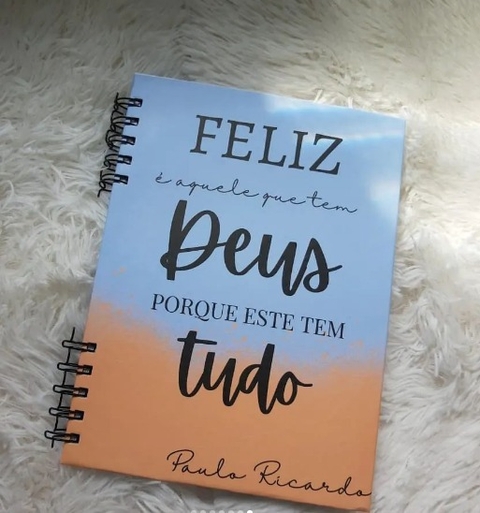 FELIZ
é aquele que tem
Deus
PORQUE ESTE TEM
tudo
Paulo Ricardo